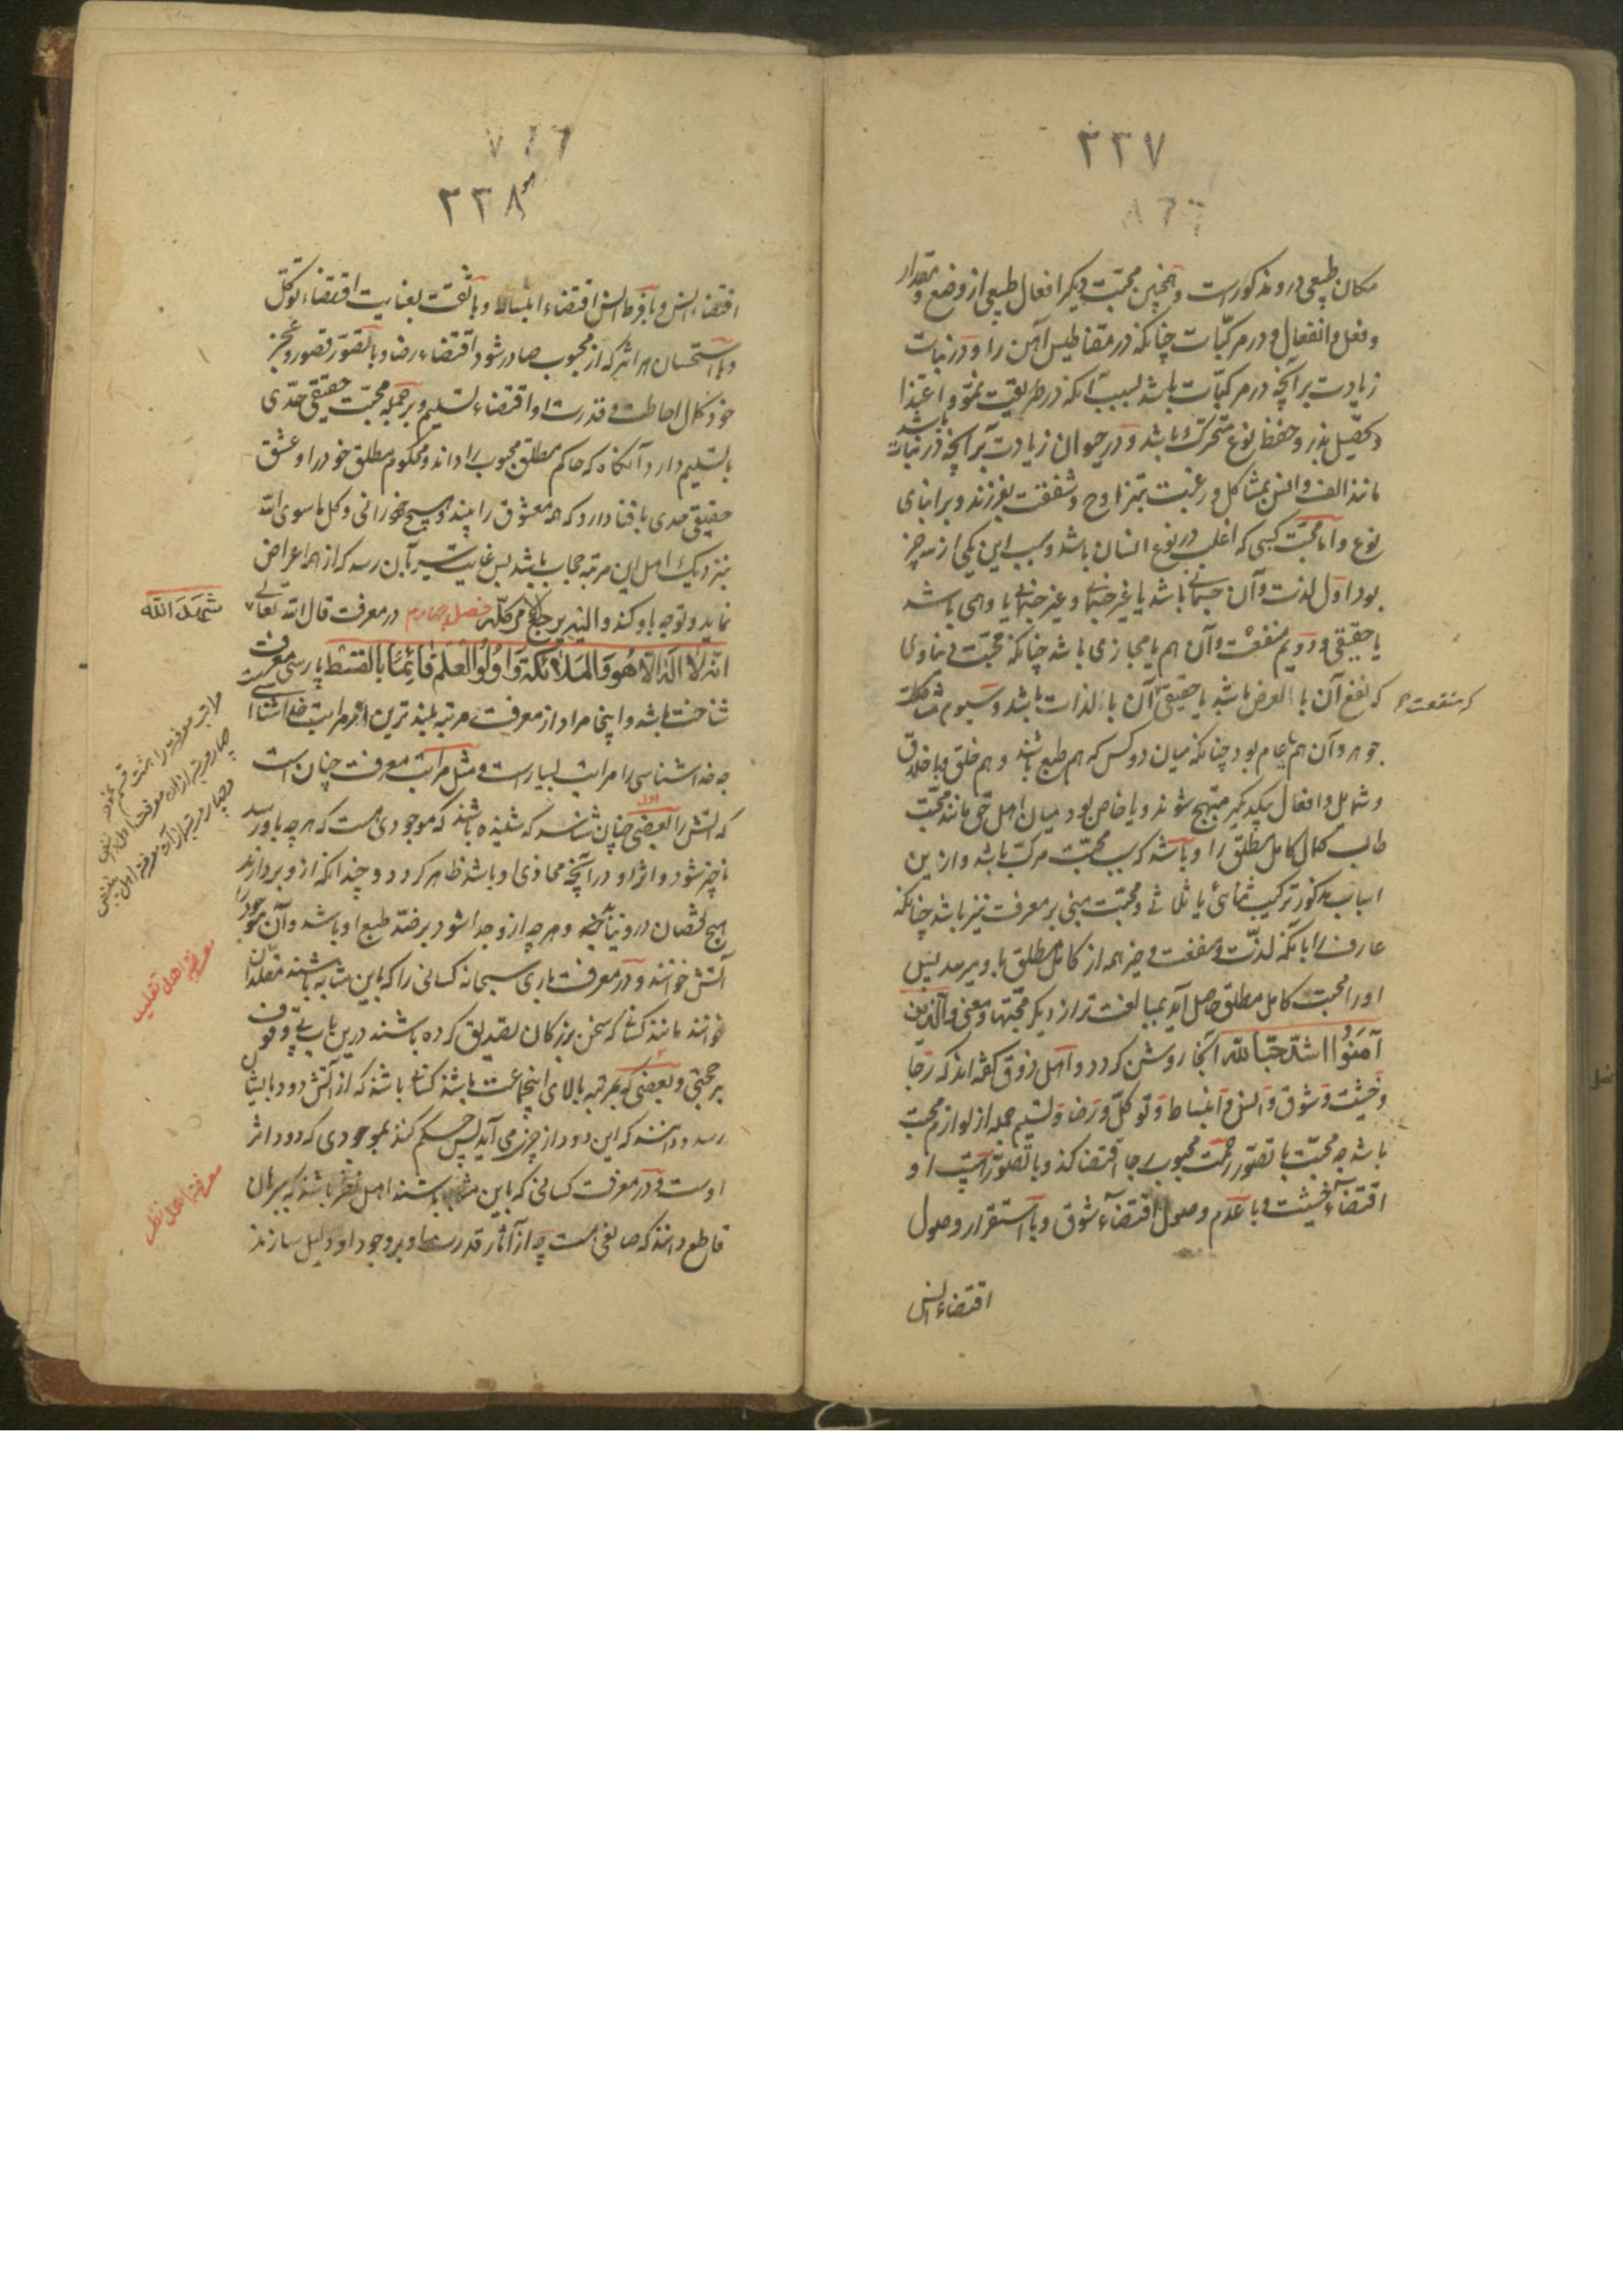 ۲۳۷
مکان طبیعی درو مذکورست و همچنین محبت دیگر افعال طبیعی از وضع و مقدار
و فعل و انفعال و در مرکبات چنانکه در مقناطیس آهن را و در نبات
زیادت بر آنچه در مرکبات باشد بسبب آنکه در طریقت نمو و اغتذا
و تحصیل بذر و حفظ نوع متحرک باشد و در حیوان زیادت بر آنچه در نبات باشد
مانند الف و انس بمشاکل و رغبت بتزاوج و شفقت بفرزند و بر ابنای
نوع و اما محبت کسبی که اغلب در نوع انسان باشد و سبب این یکی از سه چیز
بود اول لذت و آن جسمانی باشد یا غیر جسمانی و غیر جسمانی یا وهمی باشد
یا حقیقی و دویم منفعت و آن هم یا مجازی باشد چنانکه محبت دنیاوی
که نفع آن بالعرض باشد یا حقیقی آن بالذات باشد و سیوم مشاکلت
که منفعت
جوهر و آن هم یا عام بود چنانکه میان دو کس که هم طبع باشند و هم خلق و باخلاق
و شمایل و افعال یکدیگر مبتهج شوند و یا خاص بود میان اهل حق مانند محبت
طالب کمال کامل مطلق را و باشد که سبب محبت مرکب باشد و ازین
اسباب مذکور ترکیب ثنائی یا ثلاثی و محبت مبنی بر معرفت نیز باشد چنانکه
عارف را با آنکه لذت و منفعت و خیر همه از کامل مطلق باو میرسد پس
او را محبت کامل مطلق حاصل آید بمبالغت تر از دیگر محبتها و معنی والذین
آمَنُوا اشدّ حبّا لله اینجا روشن گردد و اهل ذوق گفته اند که رجا
و خشیت و شوق و انس و انبساط و توکل و رضا و تسلیم جمله از لوازم محبت
باشد چه محبت با تصور رحمت محبوب رجا اقتضا کند و با تصور هیبت او
اقتضاء خشیت و با عدم وصول اقتضاء شوق و با استقرار وصول
اقتضاء انس
۲۳۸
اقتضاء انس و با فرط انس اقتضاء انبساط و با ثقت بعنایت اقتضاء توکل
و با استحسان هر اثر که از محبوب صادر شود اقتضاء رضا و با تصور قصور و عجز
خود و کمال احاطت و قدرت او اقتضاء تسلیم و بر جمله محبت حقیقی حدّی
بالتسلیم دارد آنگاه که حاکم مطلق محبوب را داند و محکوم مطلق خود را و عشق
حقیقی حدی با فنا دارد که همه معشوق را بیند و هیچ خود را نی و کل ما سوی الله
بنزدیک اهل این مرتبه حجاب باشد پس غایت سیر بآن رسد که از همه اعراض
نماید و توجه باو کند و الیه یرجع الامر کله فصل چهارم در معرفت قال الله تعالی
شَهِدَ الله
انّه لا اله الا هُو وَالمَلائکة وَاُولُوا العلم قائمًا بالقسط پارسی معرفت
شناختن باشد و اینجا مراد از معرفت مرتبه بلندترین از مراتب خداشناسیست
چه خداشناسی را مراتب بسیارست و مثل مراتب معرفت چنان است
که آتش را بعضی چنان شناسند که شنیده باشند که موجودی هست که هر چه باو رسد
اول
ناچیز شود و اثر او در آنچه محاذی او باشد ظاهر گردد و چندانکه ازو بردارند
هیچ نقصان درو نیاید و هر چه ازو جدا شود بر ضد طبع او باشد و آن موجود را
آتش خوانند و در معرفت باری سبحانه کسانی را که باین مثابه باشند مقلدان
معرفة اهل تقلید
خوانند مانند کسانی که سخن بزرگان تصدیق کرده باشند درین باب بی وقوف
بر حجتی و بعضی که بمرتبه بالای اینجماعت باشند کسانی باشند که از آتش دود بایشان
رسد و دانند که این دود از چیزی می آید پس حکم کنند بموجودی که دود اثر
اوست و در معرفت کسانی که باین مثابه باشند اهل نظر باشند که ببرهان
معرفة اهل نظر
قاطع دانند که صانعی هست چه از آثار قدرت او بر وجود او دلیل سازند